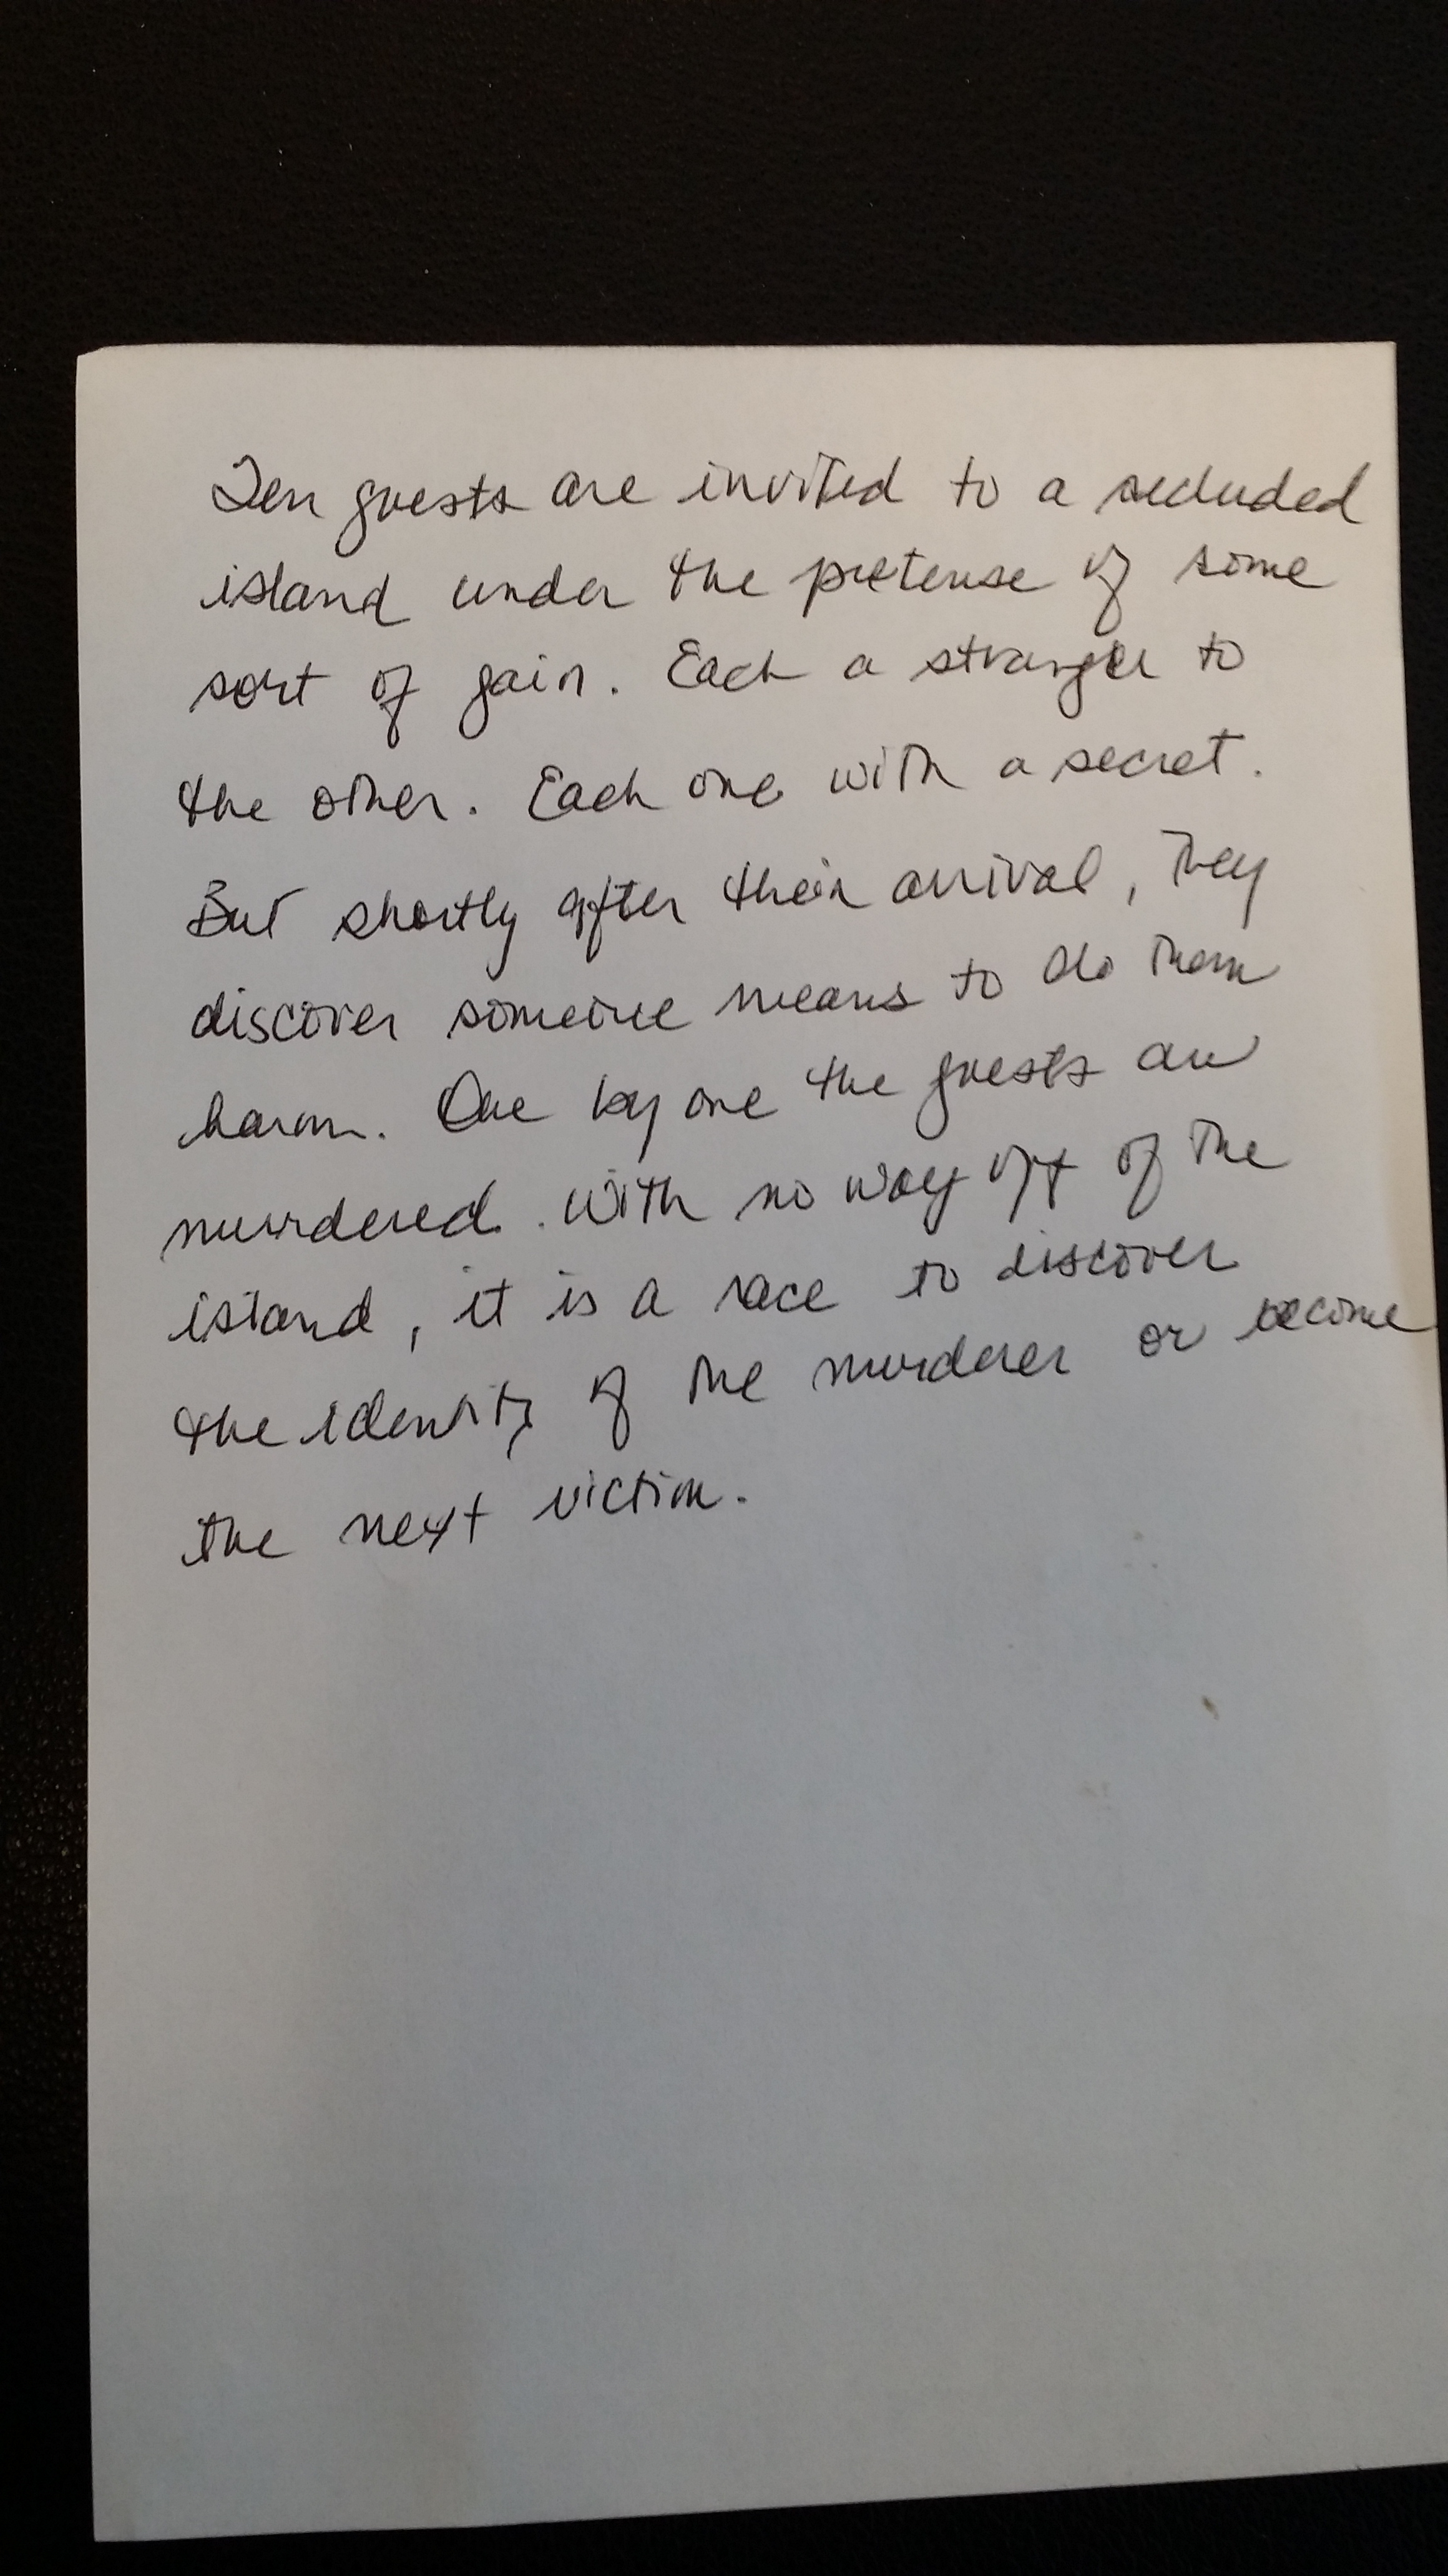 Ten guests are invited to a secluded
island under the pretense of some
sort of gain. Each a stranger to
the other. Each one with a secret.
But shortly after their arrival, they
discover someone means to do them
harm. One by one the guests are
murdered. With no way off of the
island, it is a race to discover
the identity of the murderer or become
the next victim.